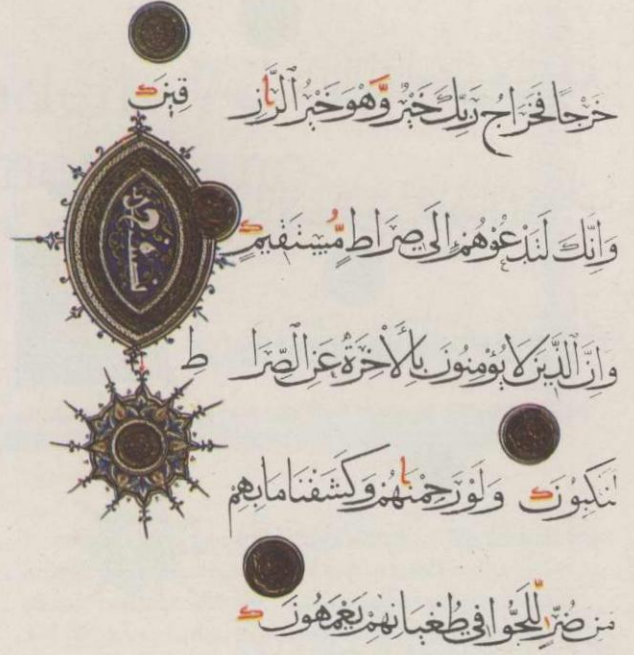 خَرْجًا فَخَرَاجُ رَبِّكَ خَيْرٌ وَّهُوَ خَيْرُ الرَّٰزِ
قِينَ ک
وَاِنَّكَ لَتَدْعُوْهُمْ اِلَى صِرَاطٍ مُّسْتَقِيمٍ ک
وَاِنَّ الَّذِينَ لَا يُؤْمِنُونَ بِالْاٰخِرَةِ عَنِ الصِّرَا
طِ
لَنَكِبُونَ ک وَلَوْ رَحِمْنٰهُمْ وَكَشَفْنَا مَا بِهِمْ
مِنْ ضُرٍّ لَّلَجُّوا فِي طُغْيَانِهِمْ يَعْمَهُونَ ک